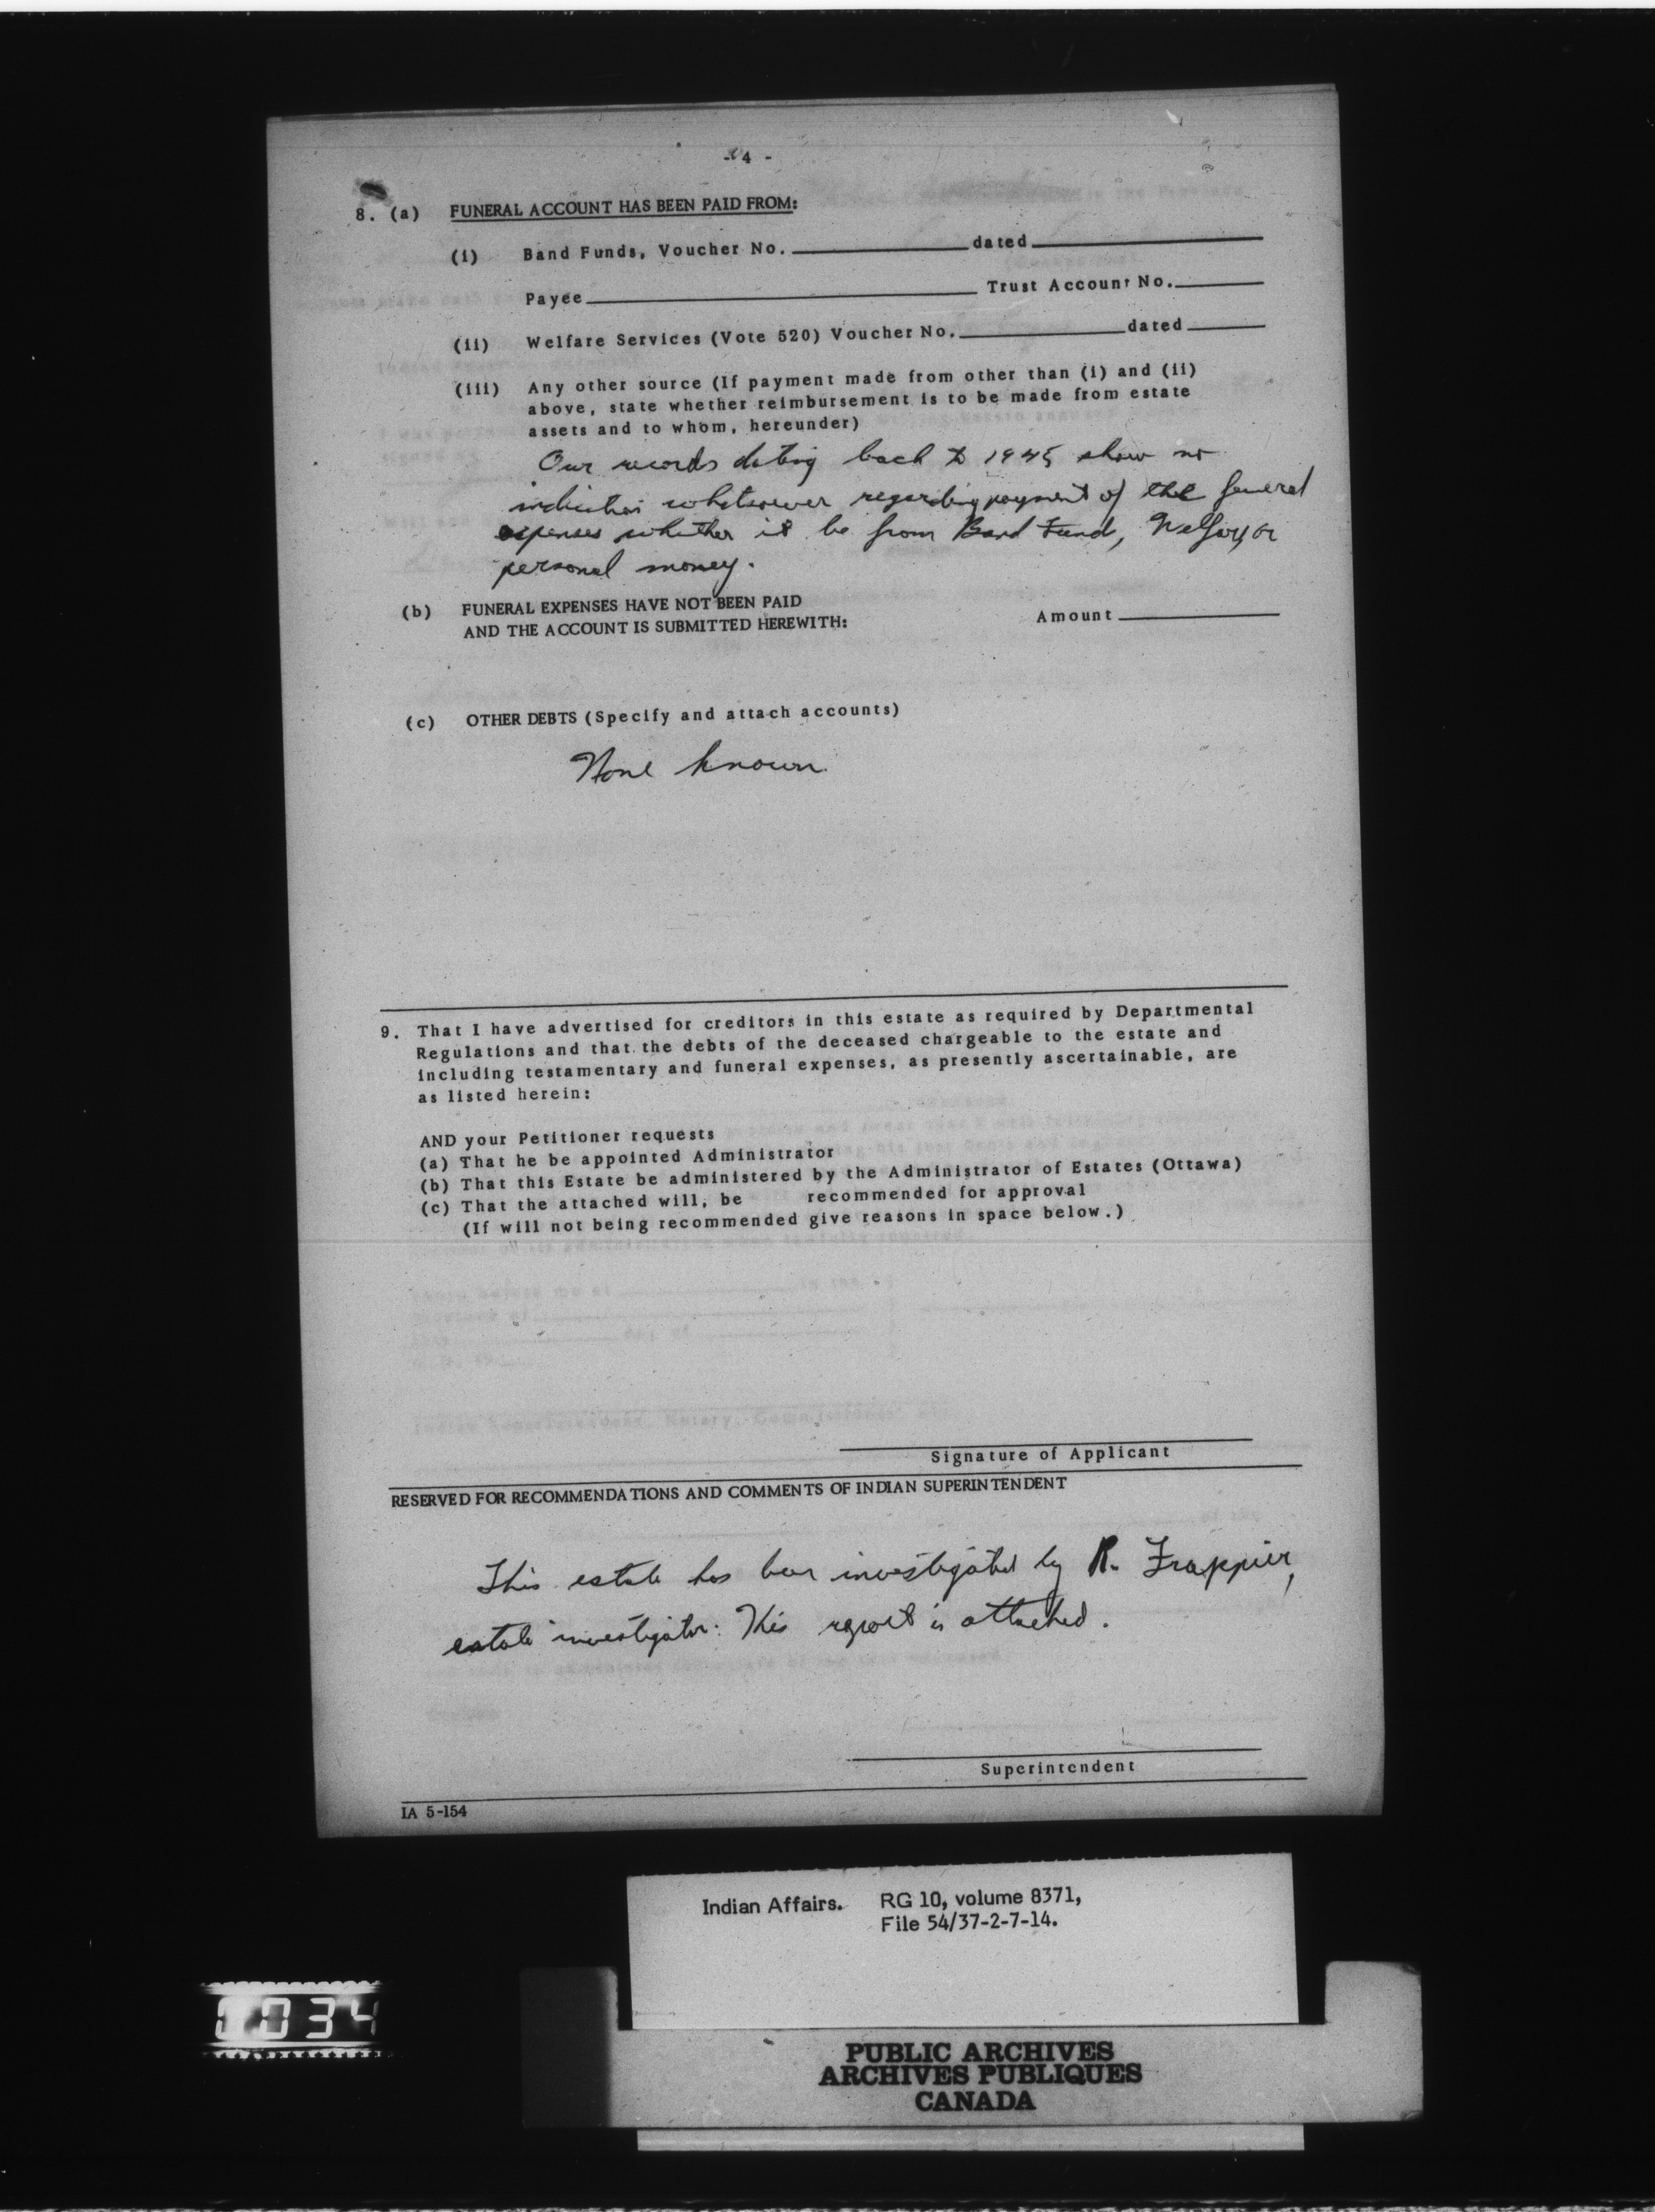 - 4 -
8. (a) FUNERAL ACCOUNT HAS BEEN PAID FROM:
(i) Band Funds, Voucher No. ____ dated ____
Payee ____ Trust Account No. ____
(ii) Welfare Services (Vote 520) Voucher No. ____ dated ____
(iii) Any other source (If payment made from other than (i) and (ii)
above, state whether reimbursement is to be made from estate
assets and to whom, hereunder)
Our records dating back to 1945 show no
indication whatsoever regarding payment of the funeral
expenses whether it be from Band Fund, Welfare, or
personal money.
(b) FUNERAL EXPENSES HAVE NOT BEEN PAID
AND THE ACCOUNT IS SUBMITTED HEREWITH: Amount ____
(c) OTHER DEBTS (Specify and attach accounts)
None known
9. That I have advertised for creditors in this estate as required by Departmental
Regulations and that the debts of the deceased chargeable to the estate and
including testamentary and funeral expenses, as presently ascertainable, are
as listed herein:
AND your Petitioner requests
(a) That he be appointed Administrator
(b) That this Estate be administered by the Administrator of Estates (Ottawa)
(c) That the attached will, be recommended for approval
(If will not being recommended give reasons in space below.)
Signature of Applicant
RESERVED FOR RECOMMENDATIONS AND COMMENTS OF INDIAN SUPERINTENDENT
This estate has been investigated by R. Frappier,
estate investigator. His report is attached.
Superintendent
IA 5-154
Indian Affairs. RG 10, volume 8371,
File 54/37-2-7-14.
0034
PUBLIC ARCHIVES
ARCHIVES PUBLIQUES
CANADA